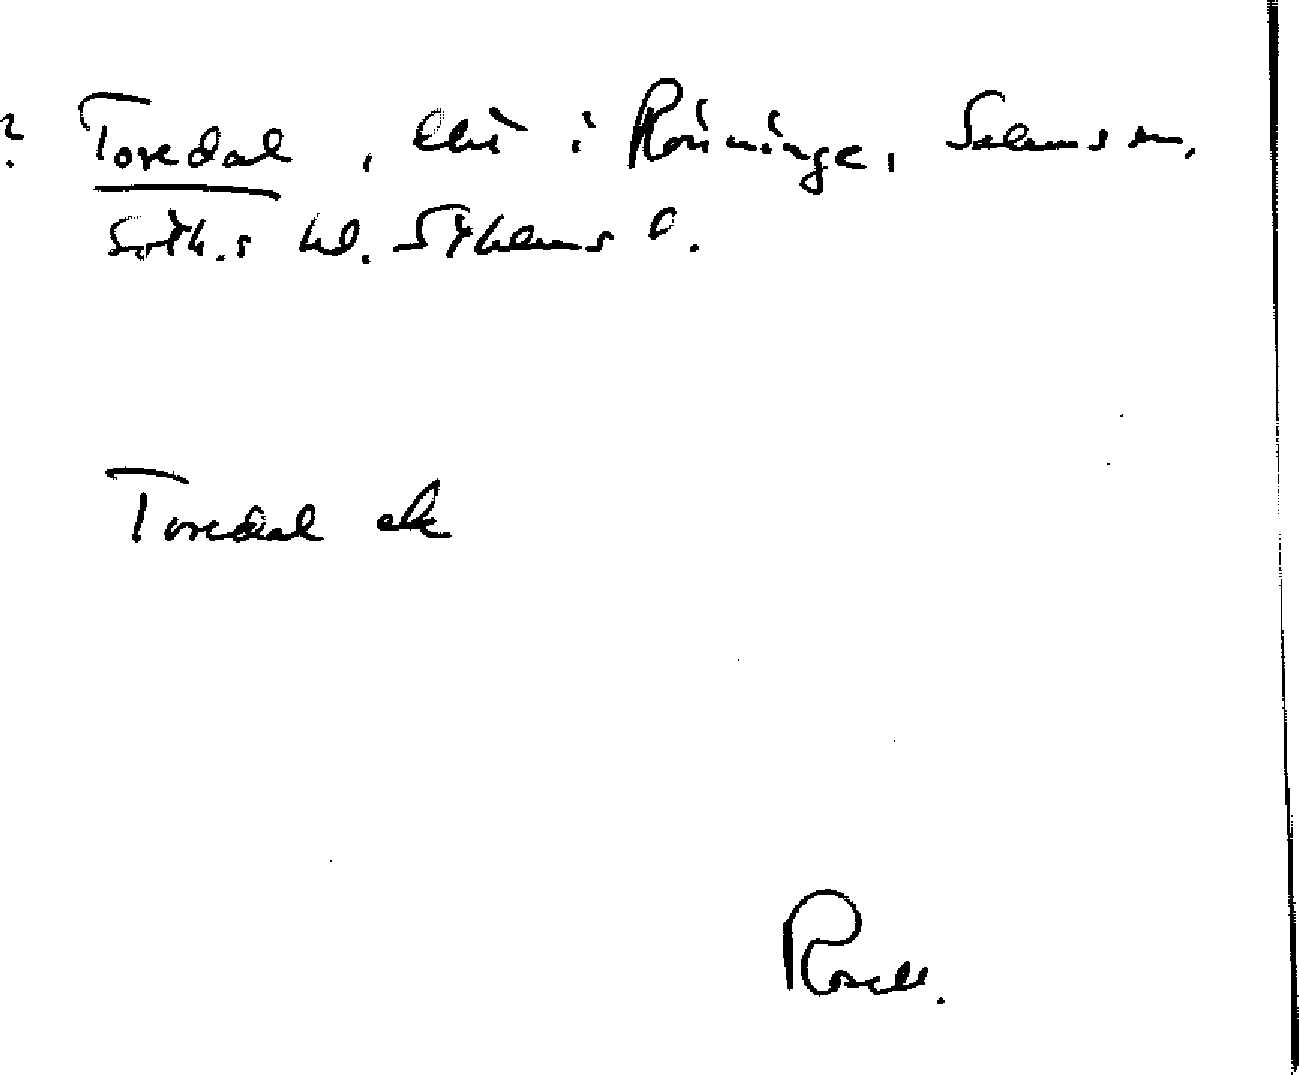 ? Toredal, till i Rönninge, Salems sn,
Soth.s hd. Sthlms l.
Toredal ek
Rosell.